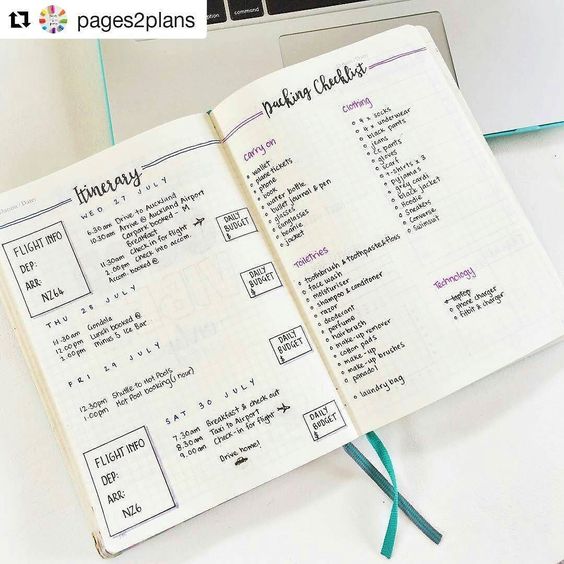 pages2plans
command
option
Itinerary
WED 27 JULY
6.30am Drive to Auckland
10.30am Arrive @ Auckland Airport
Carpark booked - M
Breakfast
11.30am Check-in for flight
2.00pm Check into accom.
Accom. booked @
FLIGHT INFO
DEP:
ARR:
NZ64
DAILY BUDGET
$
THU 28 JULY
11.30am Gondola
12.00pm Lunch booked @
2.00pm Minus 5 Ice Bar
DAILY BUDGET
$
FRI 29 JULY
12.30pm Shuttle to Hot Pools
1.00pm Hot Pool booking (1 hour)
DAILY BUDGET
$
SAT 30 JULY
7.30am Breakfast & check out
8.30am Taxi to Airport
9.00am Check-in for flight
Drive home!
FLIGHT INFO
DEP:
ARR:
NZ6
DAILY BUDGET
$
Packing Checklist
Carry on
wallet
plane tickets
phone
book
water bottle
bullet journal & pen
glasses
sunglasses
beanie
jacket
Toiletries
toothbrush & toothpaste & floss
face wash
moisturiser
shampoo & conditioner
razor
deodorant
perfume
hairbrush
make-up remover
cotton pads
make-up
make-up brushes
panadol
laundry bag
Clothing
4 x socks
4 x underwear
black pants
jeans
gloves
scarf
t-shirts x 3
pyjamas
grey cardi
black jacket
Hoodie
Sneakers
Converse
Swimsuit
Technology
laptop
phone charger
fitbit & charger